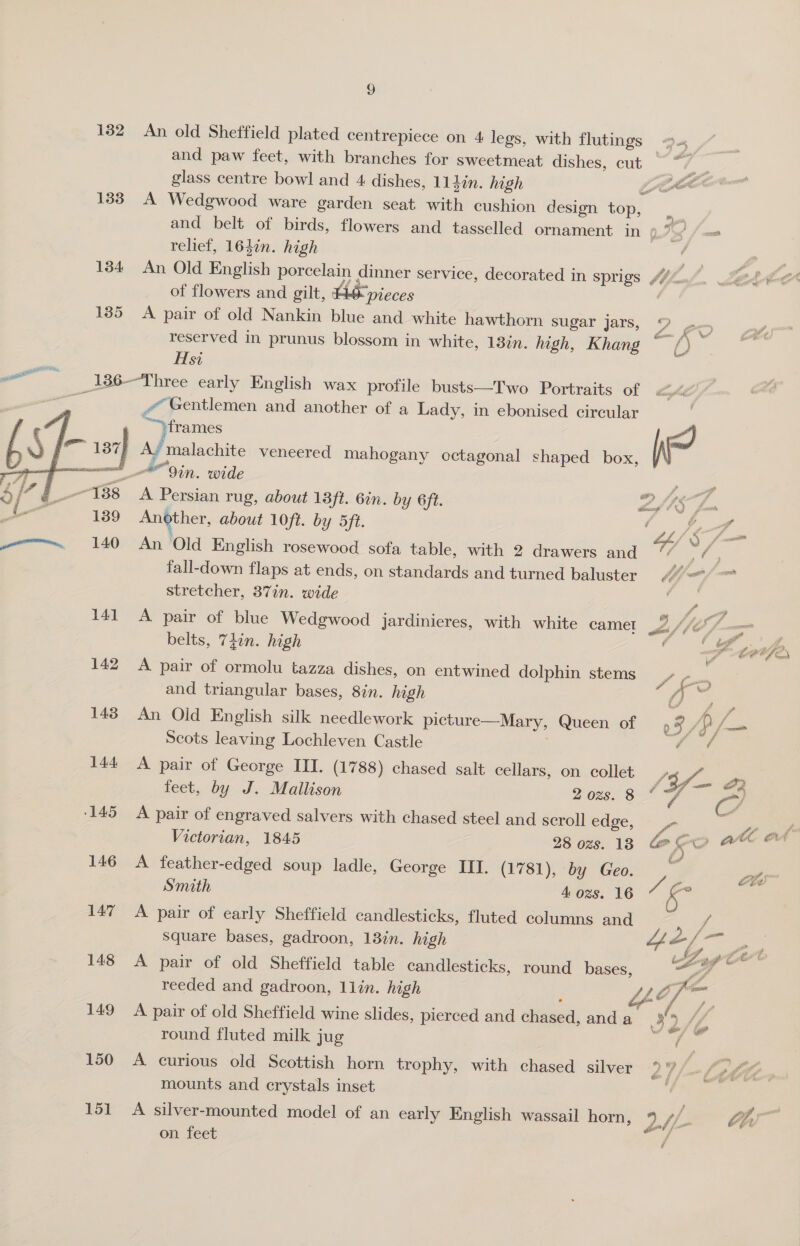 9
132 An old Sheffield plated centrepiece on 4 legs, with flutings
and paw feet, with branches for sweetmeat dishes, cut
glass centre bowl and 4 dishes, 11½in. high
133 A Wedgwood ware garden seat with cushion design top,
and belt of birds, flowers and tasselled ornament in
relief, 16½in. high
134 An Old English porcelain dinner service, decorated in sprigs
of flowers and gilt, pieces
135 A pair of old Nankin blue and white hawthorn sugar jars,
reserved in prunus blossom in white, 13in. high, Khang
Hsi
136 Three early English wax profile busts—Two Portraits of
Gentlemen and another of a Lady, in ebonised circular
frames
137 A malachite veneered mahogany octagonal shaped box,
9in. wide
138 A Persian rug, about 13ft. 6in. by 6ft.
139 Another, about 10ft. by 5ft.
140 An Old English rosewood sofa table, with 2 drawers and
fall-down flaps at ends, on standards and turned baluster
stretcher, 37in. wide
141 A pair of blue Wedgwood jardinieres, with white cameo
belts, 7½in. high
142 A pair of ormolu tazza dishes, on entwined dolphin stems
and triangular bases, 8in. high
143 An Old English silk needlework picture—Mary, Queen of
Scots leaving Lochleven Castle
144 A pair of George III. (1788) chased salt cellars, on collet
feet, by J. Mallison 2 ozs. 8
145 A pair of engraved salvers with chased steel and scroll edge,
Victorian, 1845 28 ozs. 13
146 A feather-edged soup ladle, George III. (1781), by Geo.
Smith 4 ozs. 16
147 A pair of early Sheffield candlesticks, fluted columns and
square bases, gadroon, 13in. high
148 A pair of old Sheffield table candlesticks, round bases,
reeded and gadroon, 11in. high
149 A pair of old Sheffield wine slides, pierced and chased, and a
round fluted milk jug
150 A curious old Scottish horn trophy, with chased silver
mounts and crystals inset
151 A silver-mounted model of an early English wassail horn,
on feet